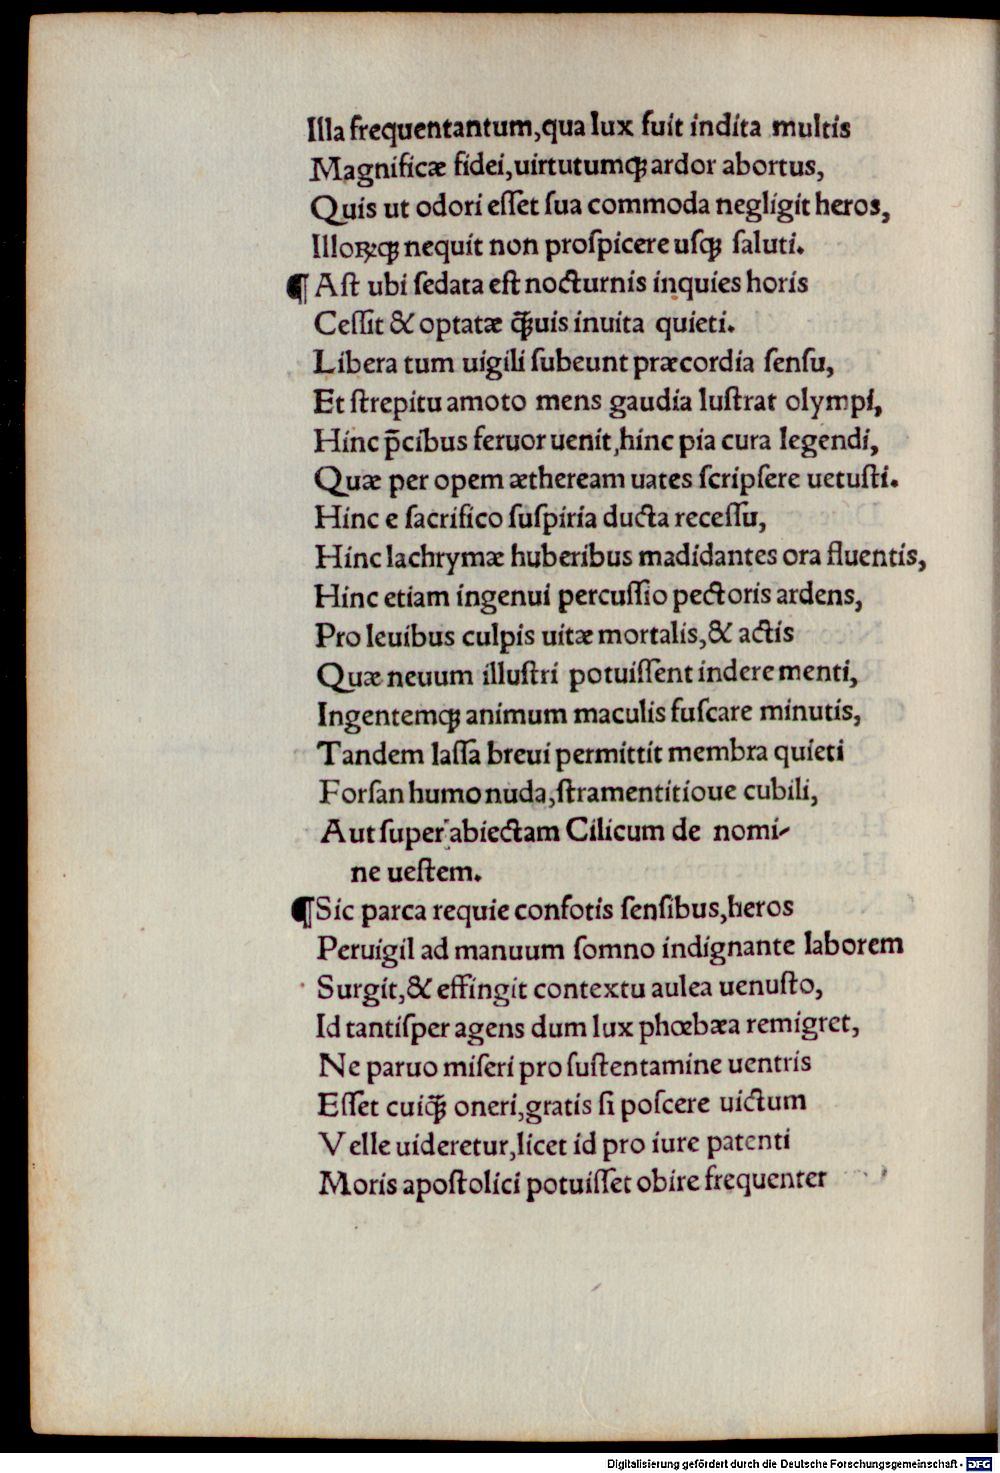 Illa frequentantum,qua lux fuit indita multis
Magnificæ fidei,uirtutumqꝫ ardor abortus,
Quis ut odori eſſet ſua commoda negligit heros,
Illoꝝqꝫ nequit non proſpicere uſqꝫ ſaluti.
¶ Aſt ubi ſedata eſt nocturnis inquies horis
Ceſſit & optatæ q̃uis inuita quieti.
Libera tum uigili ſubeunt præcordia ſenſu,
Et ſtrepitu amoto mens gaudia luſtrat olympi,
Hinc p̄cibus feruor uenit,hinc pia cura legendi,
Quæ per opem ætheream uates ſcripſere uetuſti.
Hinc e ſacrifico ſuſpiria ducta receſſu,
Hinc lachrymæ huberibus madidantes ora fluentis,
Hinc etiam ingenui percuſſio pectoris ardens,
Pro leuibus culpis uitæ mortalis,& actis
Quæ neuum illuſtri potuiſſent indere menti,
Ingentemqꝫ animum maculis fuſcare minutis,
Tandem laſſa breui permittit membra quieti
Forſan humo nuda,ſtramentitioue cubili,
Aut ſuper abiectam Cilicum de nomi-
ne ueſtem.
¶Sic parca requie confotis ſenſibus,heros
Peruigil ad manuum ſomno indignante laborem
Surgit,& effingit contextu aulea uenuſto,
Id tantiſper agens dum lux phœbæa remigret,
Ne paruo miſeri pro ſuſtentamine uentris
Eſſet cuiq̃ oneri,gratis ſi poſcere uictum
Velle uideretur,licet id pro iure patenti
Moris apoſtolici potuiſſet obire frequenter
Digitalisierung gefördert durch die Deutsche Forschungsgemeinschaft - DFG